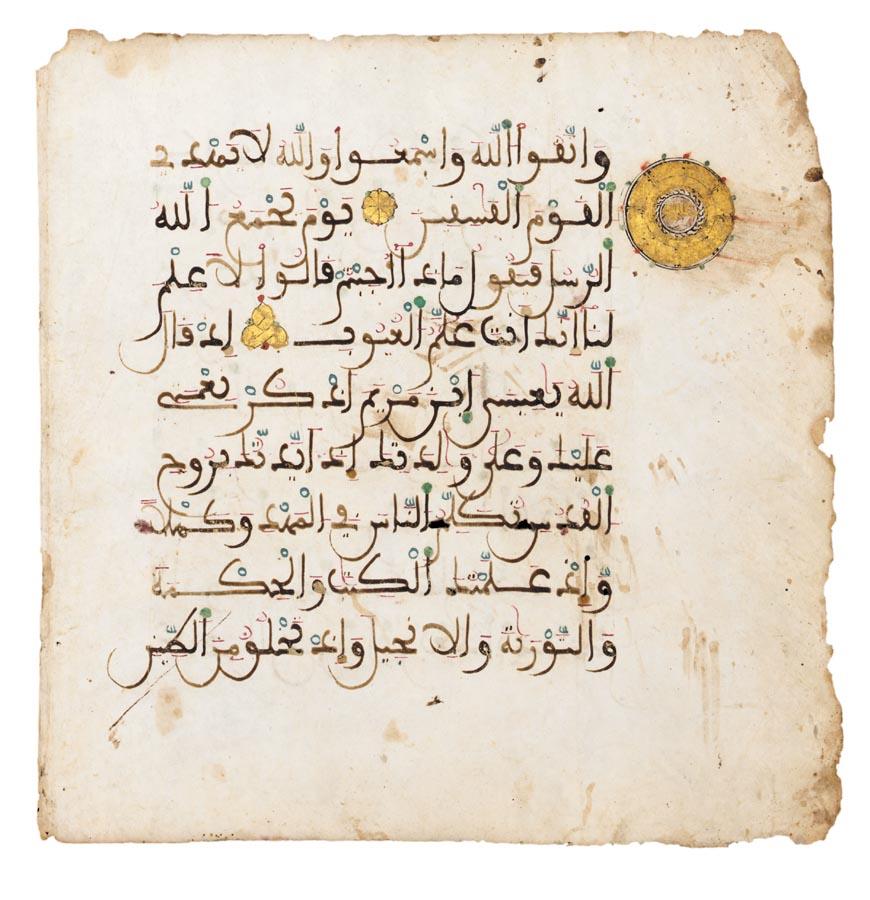 واتقوا الله واسمعوا والله لا يهدي
القوم الفسقين يوم يجمع الله
الرسل فيقول ماذا أجبتم قالوا لا علم
لنا إنك أنت علم الغيوب إذ قال
الله يعيسى ابن مريم اذكر نعمتي
عليك وعلى ولدتك إذ أيدتك بروح
القدس تكلم الناس في المهد وكهلا
وإذ علمتك الكتب والحكمة
والتورية والإنجيل وإذ تخلق من الطين